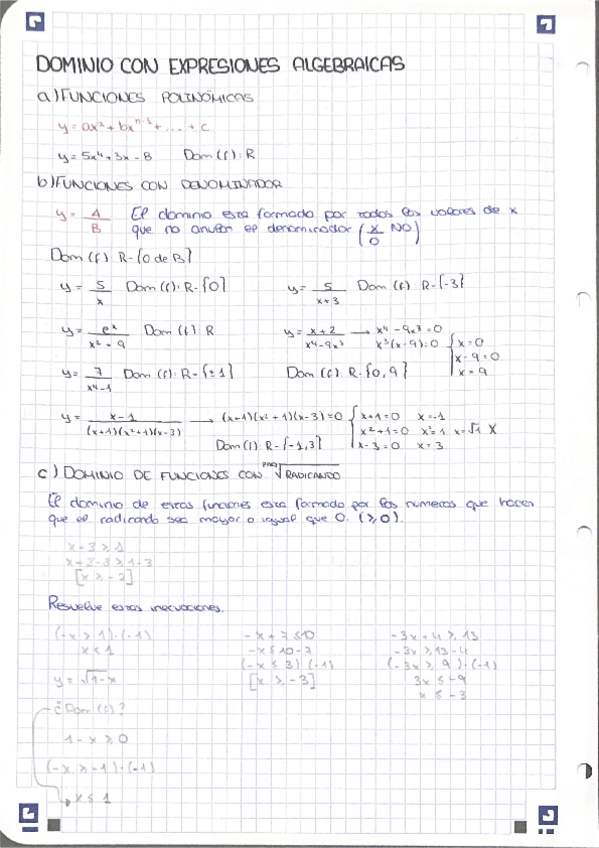 DOMINIO CON EXPRESIONES ALGEBRAICAS
a) FUNCIONES POLINÓMICAS
y = ax² + bxⁿ⁻¹ + ... + c
y = 5x⁴ + 3x - 8 Dom (f): R
b) FUNCIONES CON DENOMINADOR
y = A/B El dominio esta formado por todos los valores de x
que no anulen el denominador (x/0 NO)
Dom (f): R - {0 de B}
y = 5/x Dom (f): R - {0} y = 5/(x+3) Dom (f): R - {-3}
Dom (f): R y = (x+2)/(x⁴-9x³) → x⁴ - 9x³ = 0
x³(x-9)=0 { x = 0
x - 9 = 0
x = 9
y = 7/(x⁴-1) Dom (f): R - {±1} Dom (f): R - {0, 9}
y = (x-1)/((x+1)(x²+1)(x-3)) → (x+1)(x²+1)(x-3)=0 { x+1=0 x=-1
x²+1=0 x²=1 x=√1 X
x-3=0 x=3
Dom (f): R - {-1, 3}
c) DOMINIO DE FUNCIONES CON PAR√RADICANDO
El dominio de estas funciones esta formado por los numeros que hacen
que el radicando sea mayor o igual que 0. (≥0).
[x ≥ -2]
Resuelve estas inecuaciones.
(-x > 1)·(-1) -3x + 4 ≥ 13
x < 1 -3x ≥ 13 - 4
(-x ≤ 3)·(-1) (-3x ≥ 9)·(-1)
[x ≥ -3] 3x ≤ -9
x ≤ -3
y = √1-x
¿Dom (f)?
1 - x ≥ 0
(-x ≥ -1)·(-1)
x ≤ 1